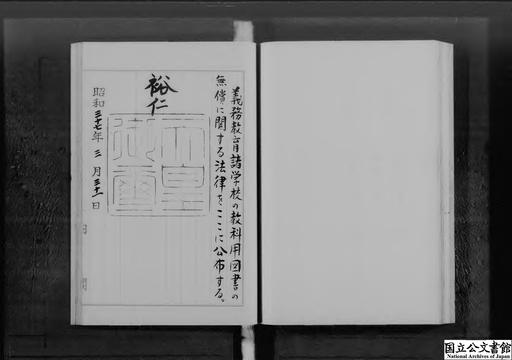 義務教育諸学校の教科用図書の
無償に関する法律をここに公布する。
裕仁
天皇
御璽
昭和三十七年三月三十一日
国立公文書館
National Archives of Japan